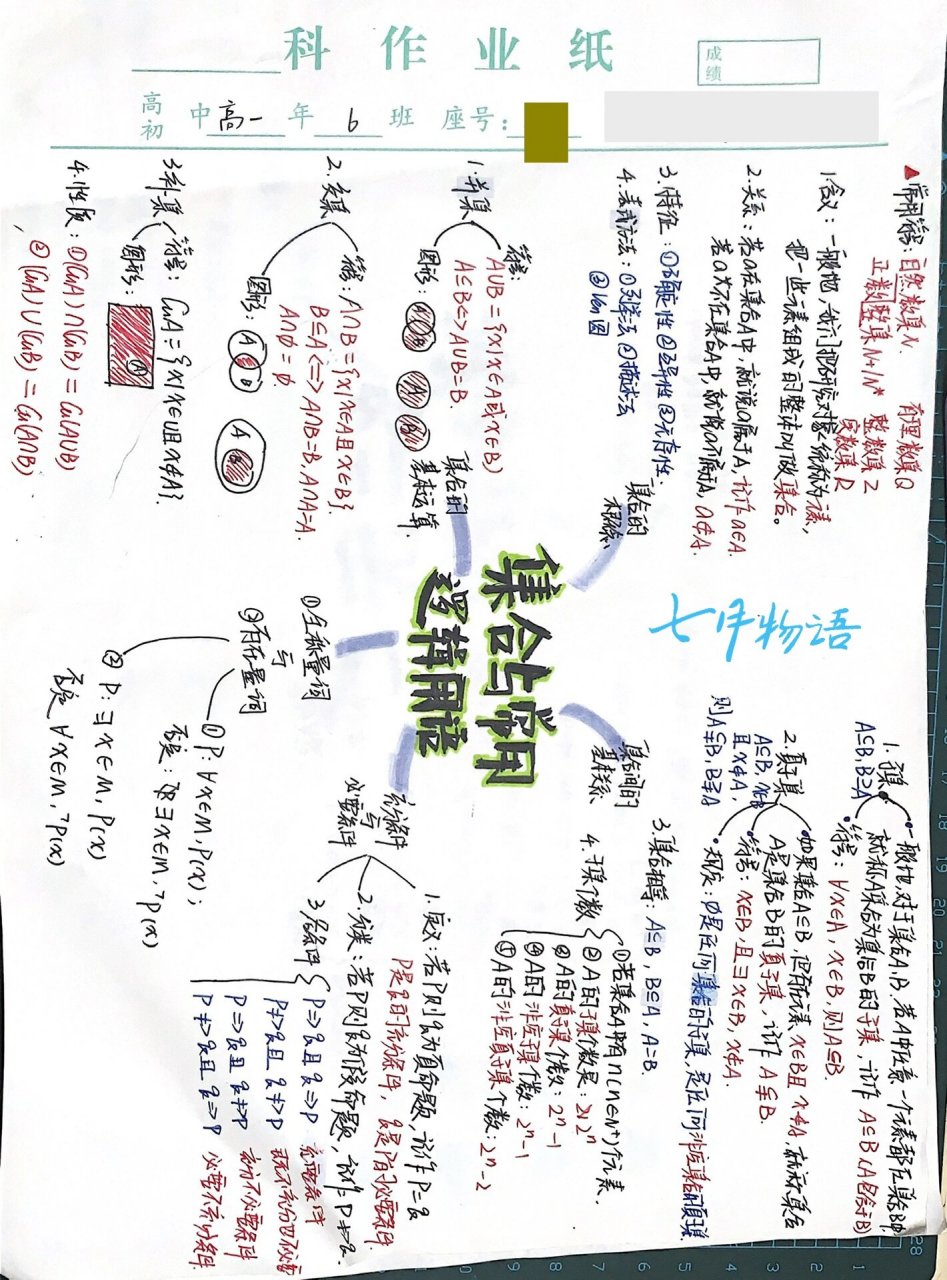 科作业纸
成绩
高初中高一年6班 座号:
七月物语
集合与常用
逻辑用语
▲常用符号 自然数集N. 有理数集Q
正数整集N+/N* 整数集Z
实数集R
集合的
概念
1.含义:一般地,我们把研究对象统称为元素,
把一些元素组成的整体叫做集合。
2.关系:若a在集合A中,就说a属于A,记作a∈A.
若a不在集合A中,就说a不属于A, a∉A.
3.特征:①确定性②互异性③无序性.
4.表示方法:①列举法②描述法
③Venn图
集合的
基本运算.
1.并集
符号:
A∪B={x|x∈A或x∈B}
A⊆B<=>A∪B=B.
图形:
A B
2.交集
符号:A∩B={x|x∈A且x∈B}.
B⊆A<=>A∩B=B,A∩A=A.
A∩∅=∅.
图形:
A B
A
3.补集
符号:CuA={x|x∈U且x∉A}.
图形:
A
4.性质:①(CuA)∩(CuB)=Cu(A∪B)
②(CuA)∪(CuB)=Cu(A∩B);
集合间的
基本关系
1.子集
一般地,对于集合A,B.若A中任意一个元素都在集合B中
就称A集合为集合B的子集,记作 A⊆B(A包含于B)
符号:∀x∈A,x∈B,则A⊆B.
A⊆B,B⊇A
2.真子集
如果集合A⊆B,但存在元素x∈B且x∉A,就称集合
A是集合B的真子集,记作A⫋B.
符号:x∈B,且∃x∈B,x∉A.
A⊆B,x∈B
且x∉A,
则A⫋B,B⫌A
规定:∅是任何集合的子集,是任何非空集合的真子集
3.集合相等:A⊆B,B⊆A,A=B.
4.子集个数
①若集合A中有n(n∈N*)个元素.
②A的子集个数是:2^n
③A的真子集个数:2^n-1
④A的非空子集个数:2^n-1
⑤A的非空真子集个数:2^n-2
充分条件
与
必要条件
1.定义:若P则q为真命题,记作P=>q
P是q的充分条件,q是P的必要条件.
2.分类:若P则q为假命题,记作P≠>q.
3.各条件
P=>q且q=>P 充要条件
P≠>q且q≠>P 既不充分也不必要
P=>q且q≠>P 充分不必要条件
P≠>q且q=>P 必要不充分条件
①全称量词
与
②存在量词
①P:∀x∈M,P(x);
否定:∃x∈M,¬p(x)
②P:∃x∈M,P(x)
否定∀x∈M,¬P(x)